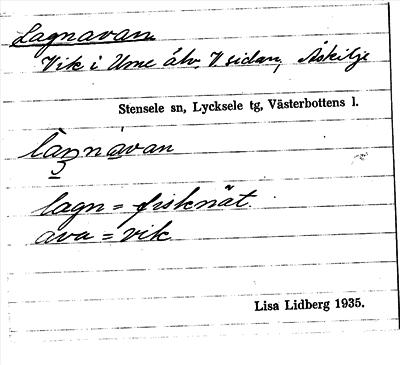 Lagnavan
Vik i Ume älv, V sidan, Åskilje
Stensele sn, Lycksele tg, Västerbottens l.
lagn = fisknät
ava = vik
Lisa Lidberg 1935.